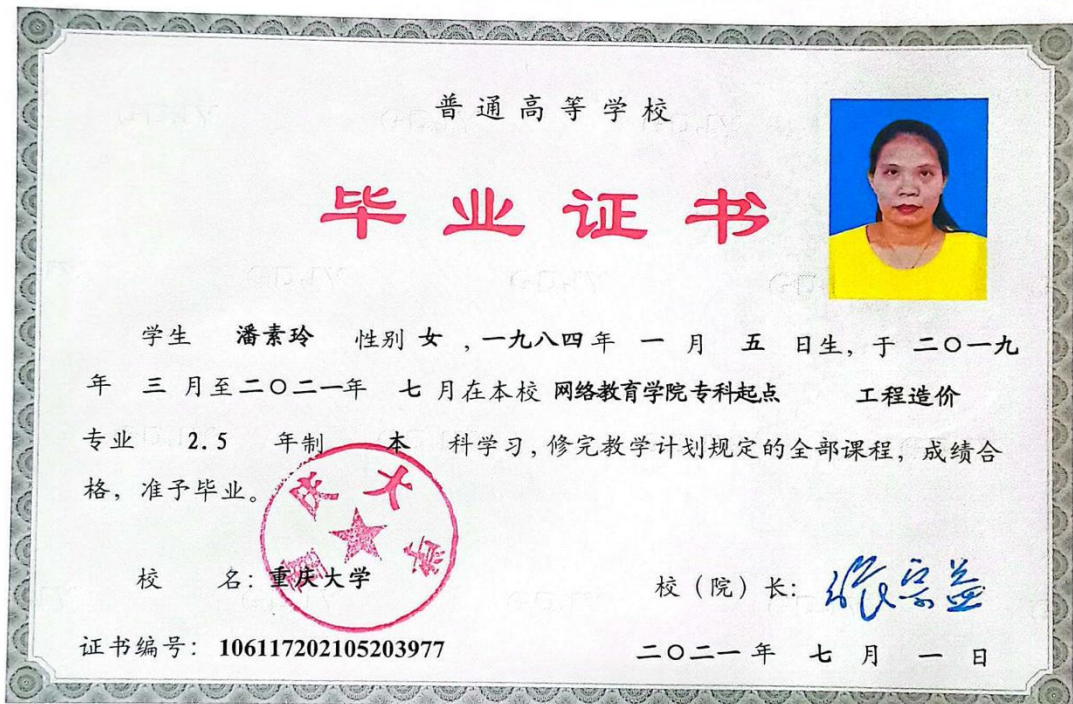 普通高等学校
毕业证书
学生 潘素玲 性别 女 ,一九八四年 一 月 五 日生, 于 二〇一九
年 三 月至二〇二一年 七 月在本校 网络教育学院专科起点 工程造价
专业 2.5 年制 本 科学习,修完教学计划规定的全部课程, 成绩合
格, 准予毕业。
重庆大学
校 名: 重庆大学
校 (院) 长: 张宗益
证书编号: 106117202105203977
二〇二一年 七 月 一 日